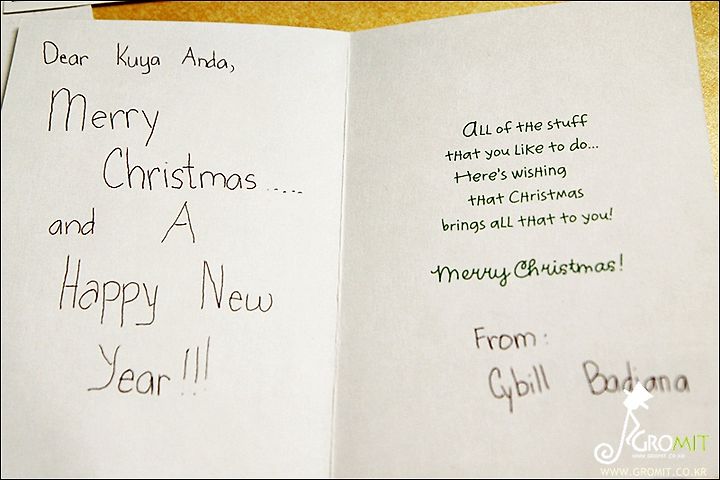 Dear Kuya Anda,
Merry
Christmas.....
and A
Happy New
Year!!!
All of the stuff
that you like to do...
Here's wishing
that Christmas
brings all that to you!
Merry Christmas!
From:
Cybill Badiana
GROMIT
www.gromit.co.kr
WWW.GROMIT.CO.KR